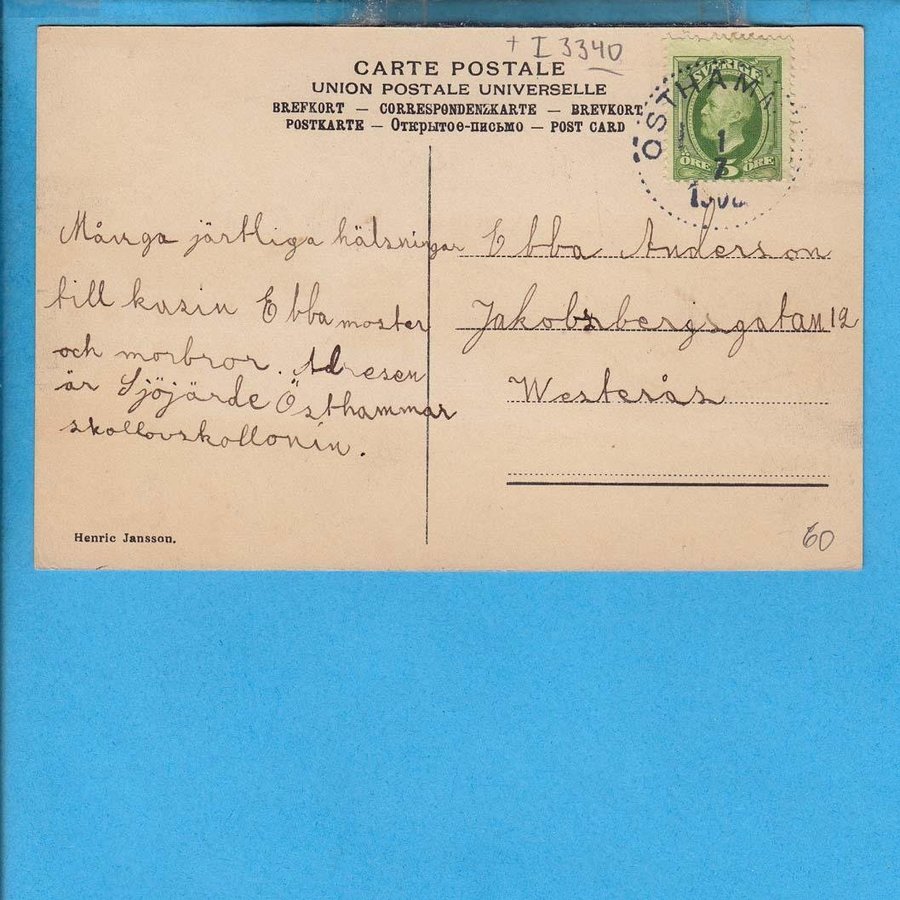 + I 3340
CARTE POSTALE
UNION POSTALE UNIVERSELLE
BREFKORT — CORRESPONDENZKARTE — BREVKORT
POSTKARTE — Открытое-письмо — POST CARD
SVERIGE
ÖRE 5 ÖRE
ÖSTHAMM
1
7
Många järtliga hälsningar
till kusin Ebba moster
och morbror. Adresen
är Sjöjärde Östhammar
skollovskollonin.
Ebba Anderson
Jakobsbergsgatan 12
Westerås
Henric Jansson.
60